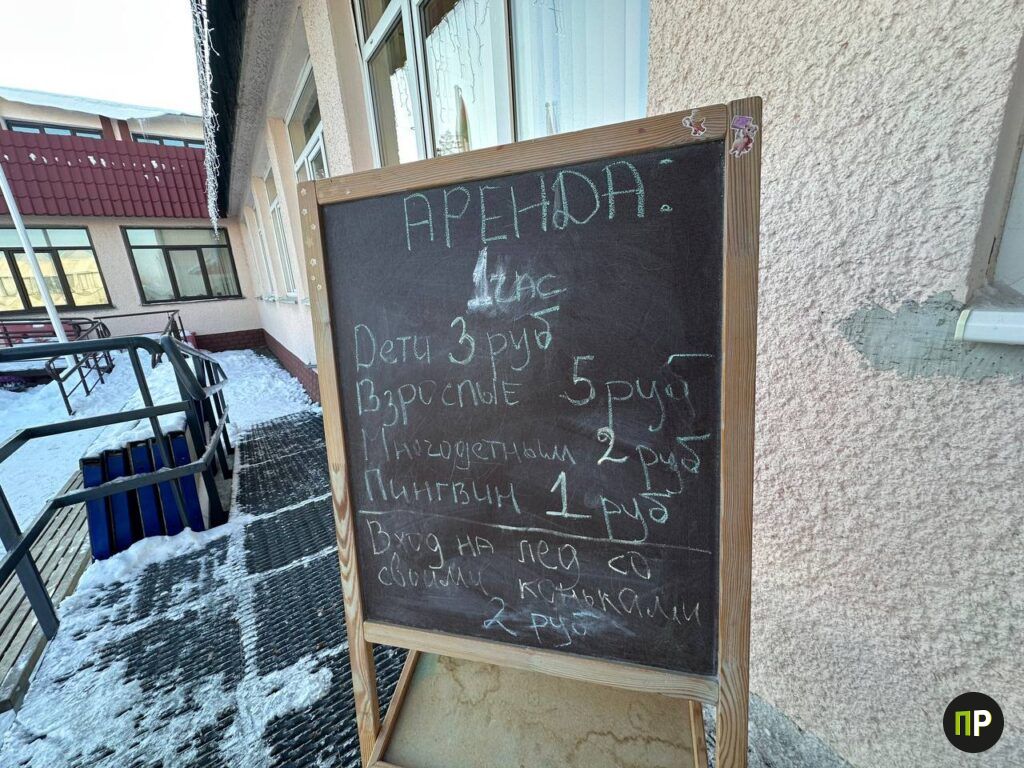 АРЕНДА:
1 час
Дети 3 руб
Взрослые 5 руб
Многодетным 2 руб
Пингвин 1 руб
Вход на лед со
своими коньками
2 руб
ПР